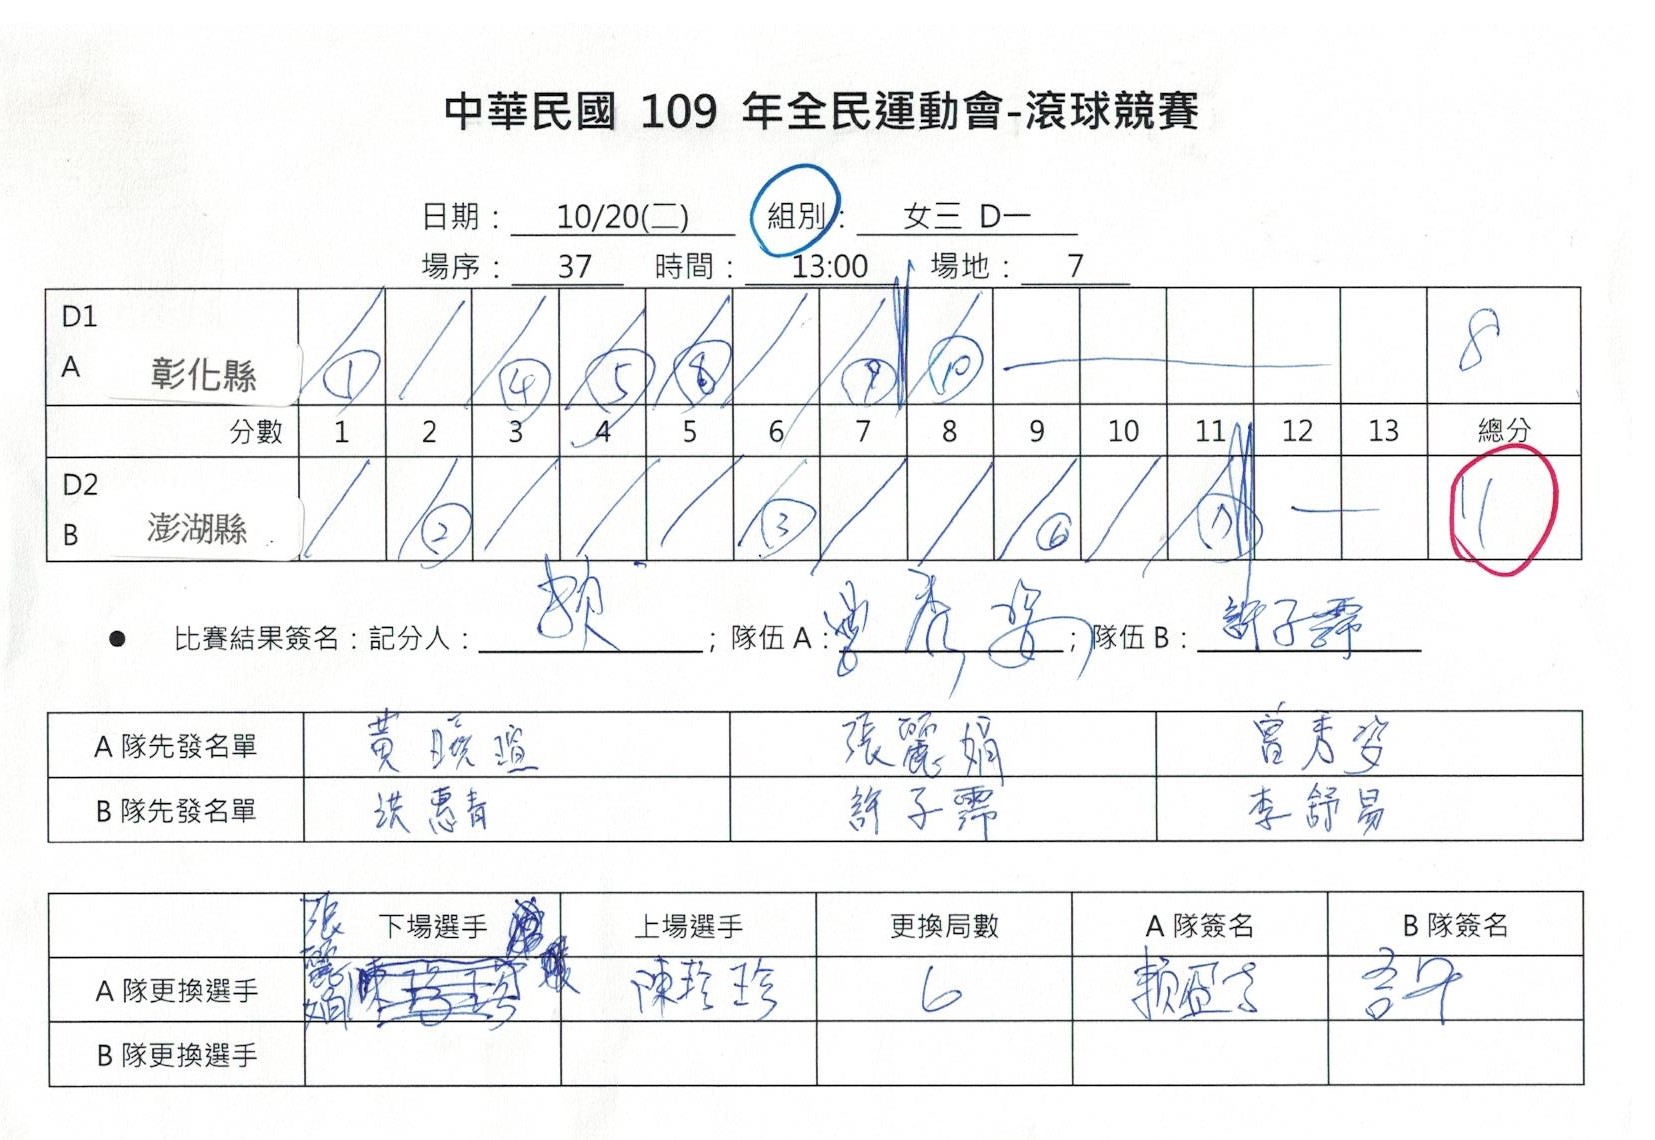 中華民國 109 年全民運動會-滾球競賽
日期： 10/20(二) 組別： 女三 D一
場序： 37 時間： 13:00 場地： 7
D1
A 彰化縣 ① ④ ⑤ ⑧ ⑨ ⑩ 8
分數 1 2 3 4 5 6 7 8 9 10 11 12 13 總分
D2
B 澎湖縣 ② ③ ⑥ 11
● 比賽結果簽名：記分人： 賴 ；隊伍 A： 曾秀姿 ；隊伍 B： 許子霈
A 隊先發名單 黃曉瑄 張麗娟 曾秀姿
B 隊先發名單 洪惠青 許子霈 李舒易
下場選手 上場選手 更換局數 A 隊簽名 B 隊簽名
A 隊更換選手 張麗娟 陳珍 6 賴 許
B 隊更換選手